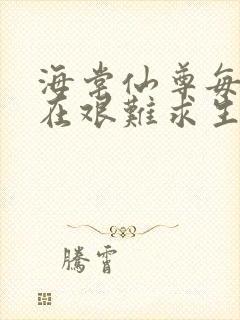 海常仙尊每
在艰難求生
騰霄